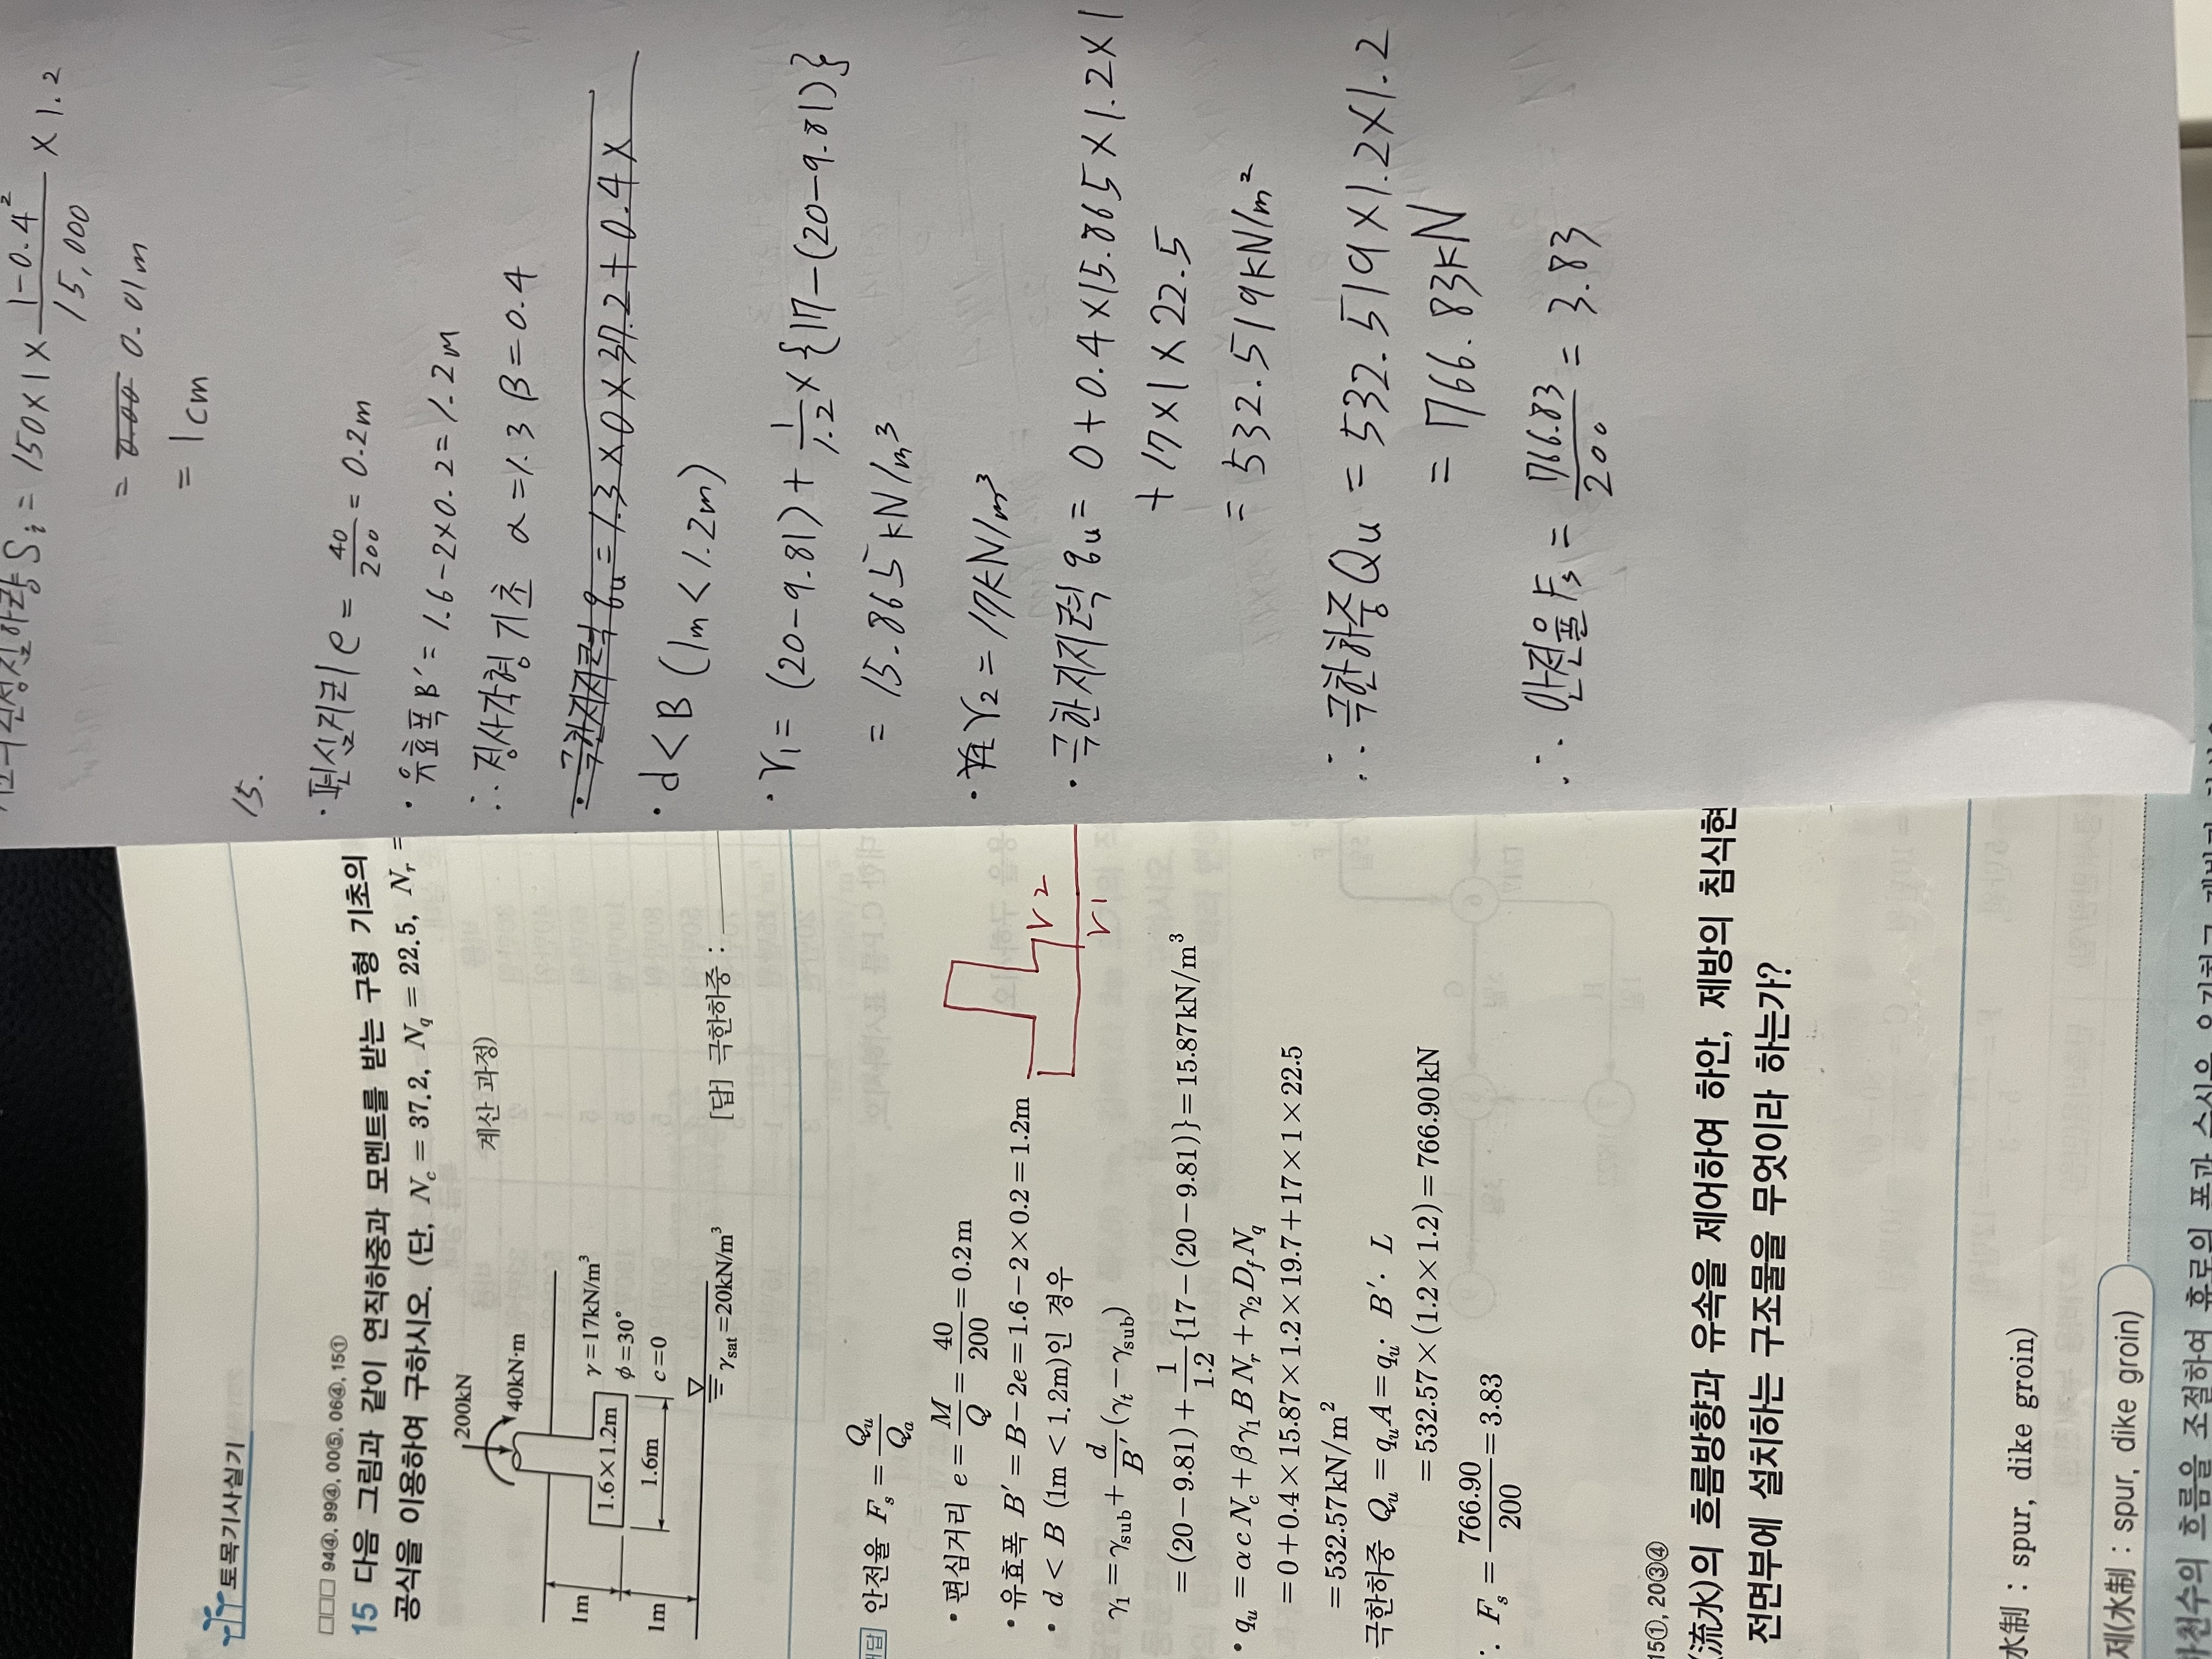 토목기사실기
□□□ 94④, 99④, 00⑤, 06④, 15①
15 다음 그림과 같이 연직하중과 모멘트를 받는 구형 기초의
공식을 이용하여 구하시오. (단, N_c = 37.2, N_q = 22.5, N_r =
계산 과정)
200kN
40kN·m
1m
1m
1.6×1.2m
1.6m
γ=17kN/m³
φ=30°
c=0
γ_sat=20kN/m³
[답] 극한하중 :
안전율 F_s = Q_u/Q_a
• 편심거리 e = M/Q = 40/200 = 0.2m
• 유효폭 B′ = B−2e = 1.6−2×0.2 = 1.2m
• d < B (1m < 1.2m)인 경우
γ₁ = γ_sub + d/B′(γ_t−γ_sub)
= (20−9.81)+1/1.2{17−(20−9.81)} = 15.87kN/m³
• q_u = αcN_c+βγ₁BN_r+γ₂D_fN_q
= 0+0.4×15.87×1.2×19.7+17×1×22.5
= 532.57kN/m²
극한하중 Q_u = q_uA = q_u·B′·L
= 532.57×(1.2×1.2) = 766.90kN
∴ F_s = 766.90/200 = 3.83
r2
r1
15①, 20③④
(流水)의 흐름방향과 유속을 제어하여 하안, 제방의 침식현
전면부에 설치하는 구조물을 무엇이라 하는가?
水制 : spur, dike groin)
제(水制 : spur, dike groin)
S_i = 150×1×(1−0.4²)/15,000 ×1.2
= 0.01m
= 1cm
15.
• 편심거리 e = 40/200 = 0.2m
• 유효폭 B′ = 1.6−2×0.2 = 1.2m
∴ 정사각형 기초 α=1.3 β=0.4
• 극한지지력 q_u = 1.3×0×37.2+0.4×
• d < B (1m < 1.2m)
• γ₁ = (20−9.81)+1/1.2×{17−(20−9.81)}
= 15.865kN/m³
• γ₂ = 17kN/m³
• 극한지지력 q_u = 0+0.4×15.865×1.2×1
+17×1×22.5
= 532.519kN/m²
∴ 극한하중 Q_u = 532.519×1.2×1.2
= 766.83kN
∴ 안전율 F_s = 766.83/200 = 3.83